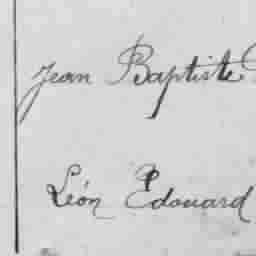 Jean Baptiste
Léon Edouard